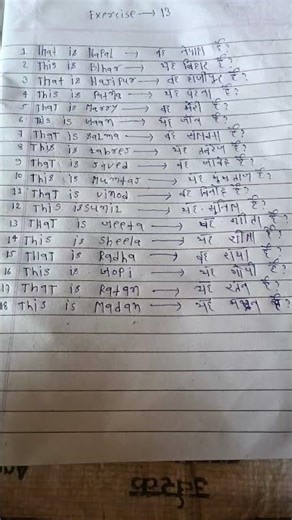 Exercise → 13
1 That is Nepal → वह नेपाल है?
2 This is Bihar → यह बिहार है?
3 That is Hajipur → वह हाजीपुर है?
4 This is Patna → यह पटना है?
5 That is Marry → वह मेरी है?
6 This is Jaan → यह जॉन है?
7 That is Salma → वह सलमा है?
8 This is Tabrej → यह तबरेज है?
9 That is Javed → वह जावेद है?
10 This is Mumtaj → यह मुमताज है?
11 That is Vinod → वह विनोद है?
12 This is Sunil → यह सुनिल है?
13 That is Geeta → यह गीता है?
14 This is Sheela → यह शीला है?
15 That is Radha → वह राधा है?
16 This is Gopi → यह गोपी है?
17 That is Ratan → यह रतन है?
18 This is Madan → यह मदन है?